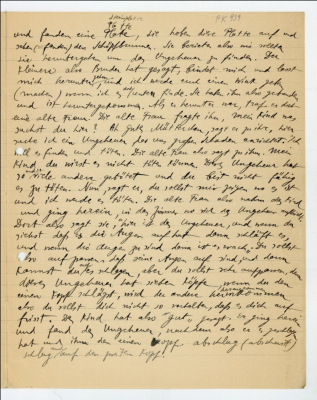 PK 959
Platte
und fanden eine Platte, sie hoben diese Platte auf und
den Schöpfbrunnen. Sie berieten also wie sollte
sie heruntergehen um das Ungeheuer zu finden. Der
kleinere also Bruder hat gesagt, bindet mich und lasst
mich herunter und ich werde euch einen Wink
machen, wenn ich es finde. Sie haben ihn also gebunden
und ist heruntergekommen. Als er herunter war, traf er dort
eine alte Frau. Die alte Frau fragte ihn, mein Kind was
suchst du hier? Ah gutes Mütterchen, sagt er zu ihr, hier
suche ich ein Ungeheuer, das uns grossen Schaden
es finden und töten. Die alte Frau also sagt zu ihm. Mein
Kind du wirst es nicht töten können. Das Ungeheuer hat
so viele andere getötet und du bist nicht fähig
es zu töten. Nun, sagt er, du sollst mir zeigen wo es ist
und ich werde es töten. Die alte Frau also nahm das Kind
und ging herein, in das Zimmer wo sich das Ungeheuer
Dort also sagt sie, hier ist das Ungeheuer, und wenn du
siehst dass es die Augen auf hat, dann schläft es
und wenn die Augen zu sind dann ist es wach. Du sollst
also auf passen, dass seine Augen auf sind und dann
kannst du es schlagen, aber du sollst sehr aufpassen, denn
dieses Ungeheuer hat sieben Köpfe, wenn du den
einen Kopf schlägst, wird der andere
also du sollst dich nicht so verhalten, dass es dich auf
frisst. Das Kind hat also "gut" gesagt. Er ging herein
und fand das Ungeheuer, nachdem also er es
hat und ihm den einen Kopf abschlug
schlug auf den zweiten Kopf.